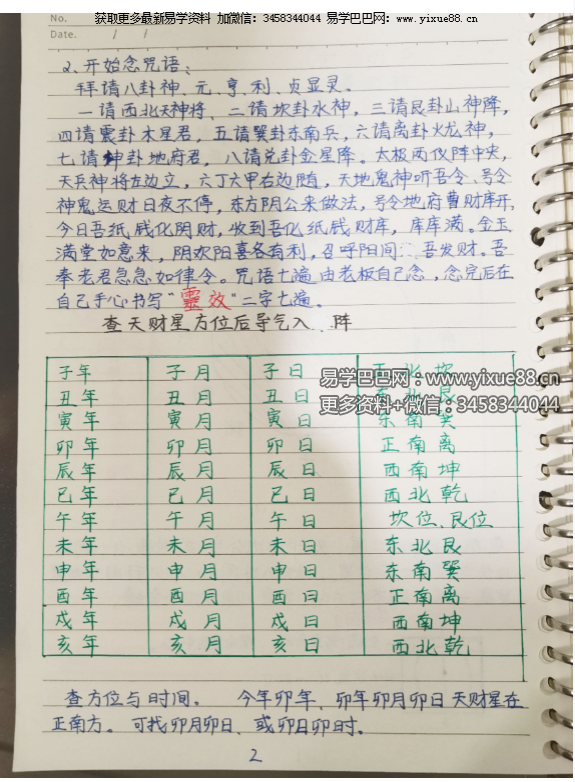 获取更多最新易学资料 加微信：3458344044 易学巴巴网：www.yixue88.cn
No.
Date. / /
2、开始念咒语：
拜请八卦神、元、亨、利、贞显灵。
一请西北天神将、二请坎卦水神，三请艮卦山神降，
四请震卦木星君，五请巽卦东南兵，六请离卦火龙神，
七请坤卦地府君，八请兑卦金星降。太极两仪阵中央，
天兵神将左边立，六丁六甲右边随，天地鬼神听吾令、号令
神鬼运财日夜不停，东方阴公来做法，号令地府曹财库开，
今日吾纸钱化阴财，收到吾化纸钱财库，库库满。金玉
满堂如意来，阴欢阳喜各有利，召呼阳间 吾发财。吾
奉老君急急如律令。咒语七遍由老板自己念，念完后在
自己手心书写“靈效”二字七遍。
查天财星方位后导气入、阵
子年 子月 子日 正北坎
丑年 丑月 丑日 东北艮
寅年 寅月 寅日 东南巽
卯年 卯月 卯日 正南离
辰年 辰月 辰日 西南坤
巳年 巳月 巳日 西北乾
午年 午月 午日 坎位、艮位
未年 未月 未日 东北艮
申年 申月 申日 东南巽
酉年 酉月 酉日 正南离
戌年 戌月 戌日 西南坤
亥年 亥月 亥日 西北乾
易学巴巴网：www.yixue88.cn
更多资料+微信：3458344044
查方位与时间。 今年卯年、卯年卯月卯日天财星在
正南方。可找卯月卯日、或卯日卯时。
2